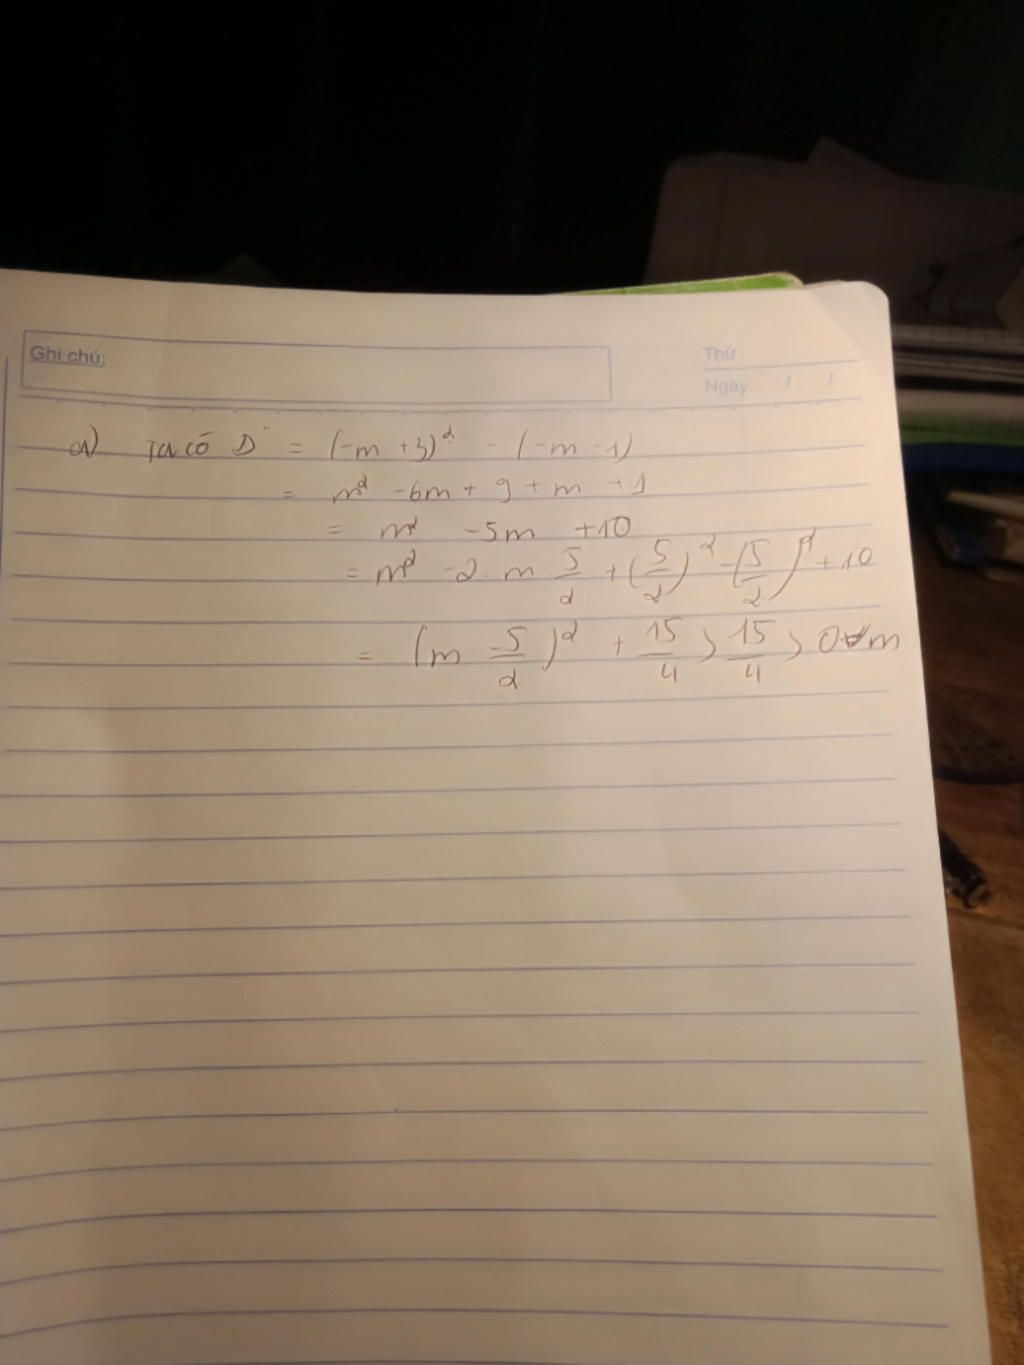 Ghi chú:
Thứ
Ngày / /
a) Ta có Δ' = (-m + 3)² - (-m - 1)
= m² - 6m + 9 + m + 1
= m² - 5m + 10
= m² - 2. m 5/2 + (5/2)² - (5/2)² + 10
= (m - 5/2)² + 15/4 > 15/4 > 0 ∀ m